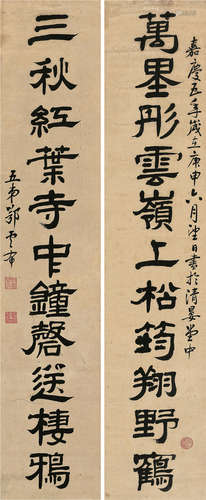 嘉慶五年歲在庚申六月望日書於清晏堂中
萬里彤雲嶺上松筠翔野鶴
三秋紅葉寺中鐘磬送棲鴉
五弟鄂雲布